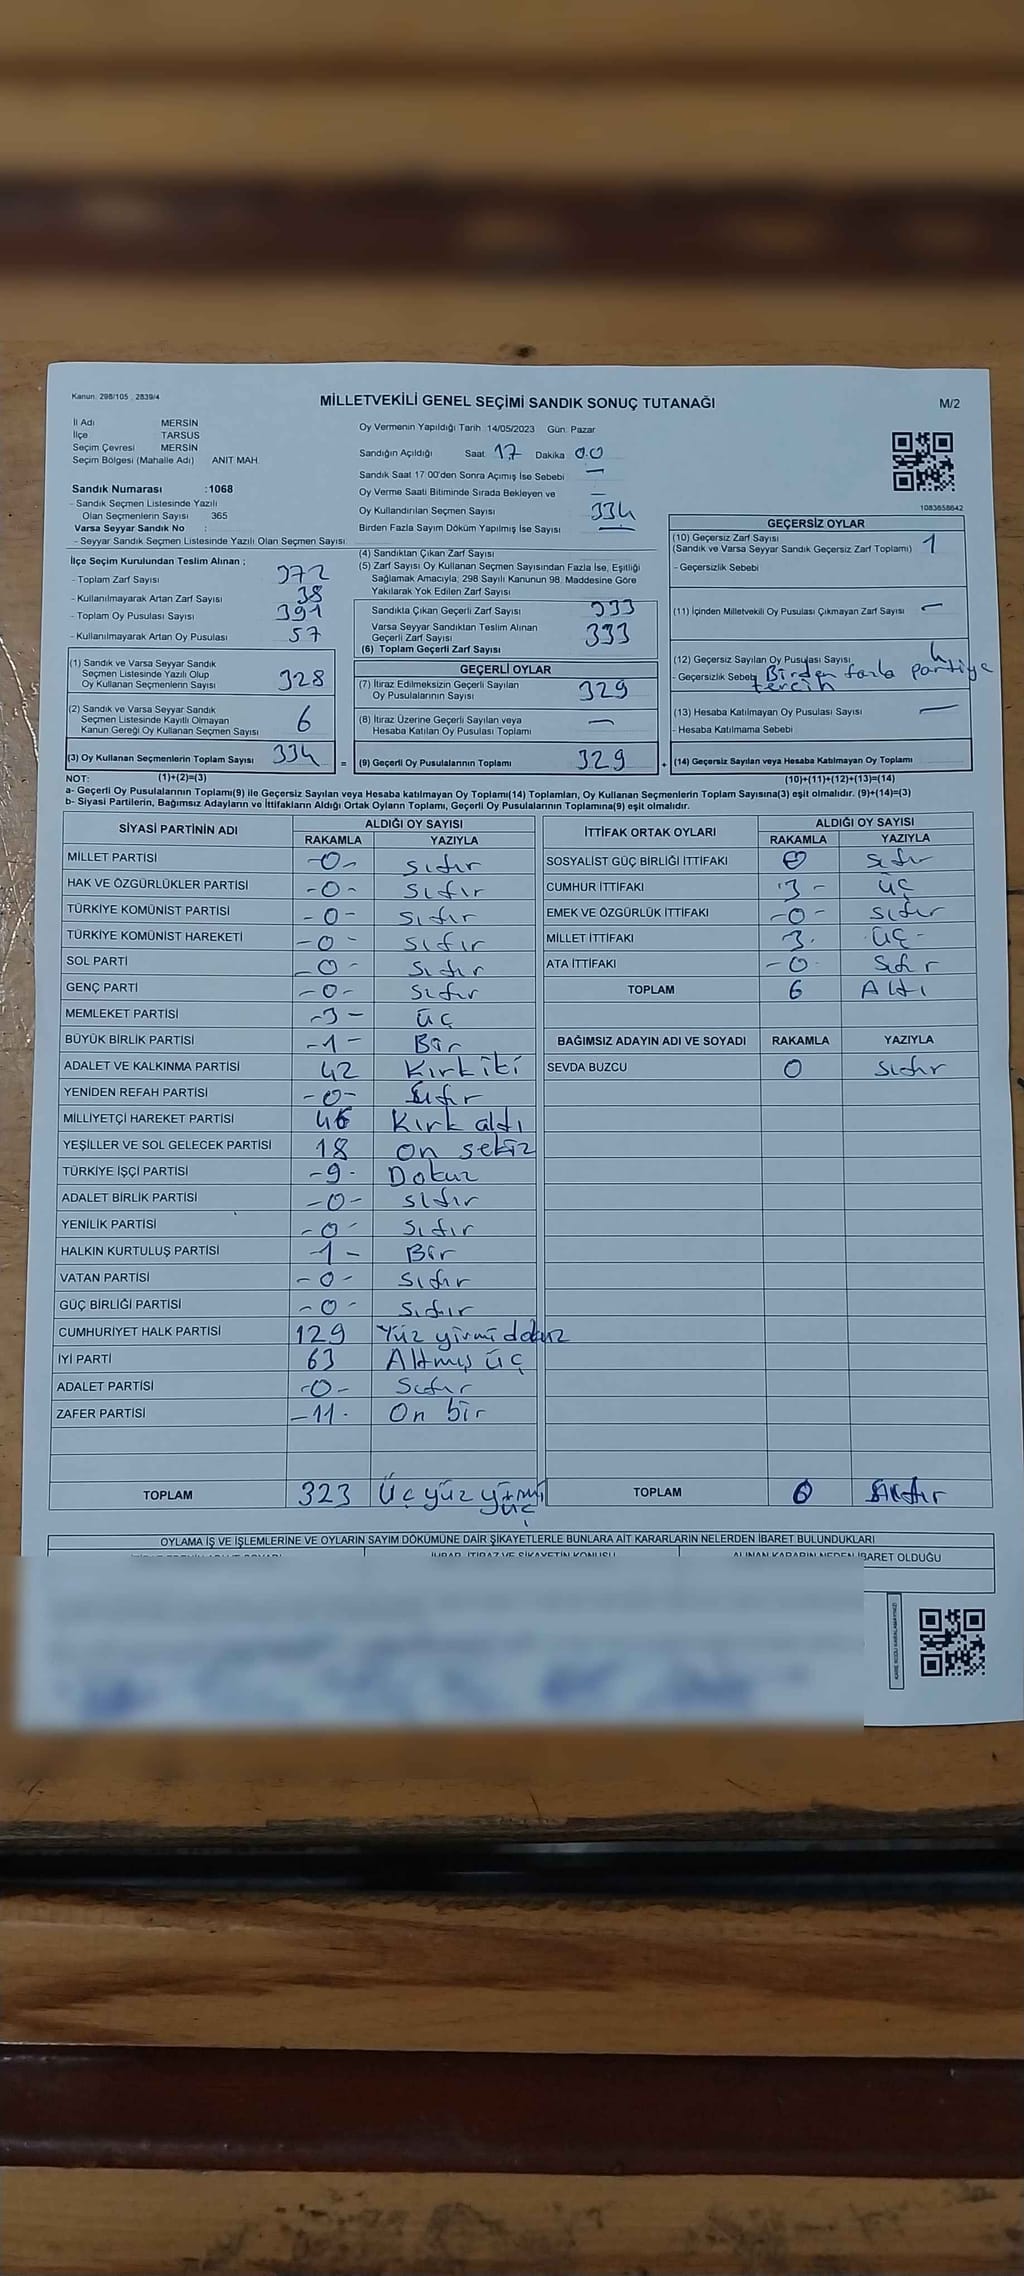 Kanun: 298/105 , 2839/4
MİLLETVEKİLİ GENEL SEÇİMİ SANDIK SONUÇ TUTANAĞI
M/2
İl Adı MERSİN
İlçe TARSUS
Seçim Çevresi MERSİN
Seçim Bölgesi (Mahalle Adı) ANIT MAH.
Oy Vermenin Yapıldığı Tarih: 14/05/2023 Gün: Pazar
Sandığın Açıldığı Saat 17 Dakika 00
Sandık Saat 17:00'den Sonra Açmış İse Sebebi —
Oy Verme Saati Bitiminde Sırada Bekleyen ve
Oy Kullandırılan Seçmen Sayısı —
334
Birden Fazla Sayım Döküm Yapılmış İse Sayısı
Sandık Numarası :1068
- Sandık Seçmen Listesinde Yazılı
Olan Seçmenlerin Sayısı 365
Varsa Seyyar Sandık No :
- Seyyar Sandık Seçmen Listesinde Yazılı Olan Seçmen Sayısı:
1083658642
İlçe Seçim Kurulundan Teslim Alınan ;
- Toplam Zarf Sayısı 372
- Kullanılmayarak Artan Zarf Sayısı 38
- Toplam Oy Pusulası Sayısı 391
- Kullanılmayarak Artan Oy Pusulası 57
(1) Sandık ve Varsa Seyyar Sandık
Seçmen Listesinde Yazılı Olup
Oy Kullanan Seçmenlerin Sayısı 328
(2) Sandık ve Varsa Seyyar Sandık
Seçmen Listesinde Kayıtlı Olmayan
Kanun Gereği Oy Kullanan Seçmen Sayısı 6
(3) Oy Kullanan Seçmenlerin Toplam Sayısı 334 =
(4) Sandıktan Çıkan Zarf Sayısı
(5) Zarf Sayısı Oy Kullanan Seçmen Sayısından Fazla İse, Eşitliği
Sağlamak Amacıyla, 298 Sayılı Kanunun 98. Maddesine Göre
Yakılarak Yok Edilen Zarf Sayısı
Sandıkta Çıkan Geçerli Zarf Sayısı 333
Varsa Seyyar Sandıktan Teslim Alınan
Geçerli Zarf Sayısı 333
(6) Toplam Geçerli Zarf Sayısı
GEÇERLİ OYLAR
(7) İtiraz Edilmeksizin Geçerli Sayılan
Oy Pusulalarının Sayısı 329
(8) İtiraz Üzerine Geçerli Sayılan veya
Hesaba Katılan Oy Pusulası Toplamı —
(9) Geçerli Oy Pusulalarının Toplamı 329 +
GEÇERSİZ OYLAR
(10) Geçersiz Zarf Sayısı 1
(Sandık ve Varsa Seyyar Sandık Geçersiz Zarf Toplamı)
- Geçersizlik Sebebi
(11) İçinden Milletvekili Oy Pusulası Çıkmayan Zarf Sayısı —
(12) Geçersiz Sayılan Oy Pusulası Sayısı 4
- Geçersizlik Sebebi Birden fazla partiye
tercih
(13) Hesaba Katılmayan Oy Pusulası Sayısı —
- Hesaba Katılmama Sebebi
(14) Geçersiz Sayılan veya Hesaba Katılmayan Oy Toplamı
NOT: (1)+(2)=(3) (10)+(11)+(12)+(13)=(14)
a- Geçerli Oy Pusulalarının Toplamı(9) ile Geçersiz Sayılan veya Hesaba katılmayan Oy Toplamı(14) Toplamları, Oy Kullanan Seçmenlerin Toplam Sayısına(3) eşit olmalıdır. (9)+(14)=(3)
b- Siyasi Partilerin, Bağımsız Adayların ve İttifakların Aldığı Ortak Oyların Toplamı, Geçerli Oy Pusulalarının Toplamına(9) eşit olmalıdır.
SİYASİ PARTİNİN ADI ALDIĞI OY SAYISI
RAKAMLA YAZIYLA
MİLLET PARTİSİ -0- sıfır
HAK VE ÖZGÜRLÜKLER PARTİSİ -0- sıfır
TÜRKİYE KOMÜNİST PARTİSİ -0- sıfır
TÜRKİYE KOMÜNİST HAREKETİ -0- sıfır
SOL PARTİ -0- sıfır
GENÇ PARTİ -0- sıfır
MEMLEKET PARTİSİ -3- üç
BÜYÜK BİRLİK PARTİSİ -1- Bir
ADALET VE KALKINMA PARTİSİ 42 Kırk iki
YENİDEN REFAH PARTİSİ -0- sıfır
MİLLİYETÇİ HAREKET PARTİSİ 46 Kırk altı
YEŞİLLER VE SOL GELECEK PARTİSİ 18 on sekiz
TÜRKİYE İŞÇİ PARTİSİ -9- Dokuz
ADALET BİRLİK PARTİSİ -0- sıfır
YENİLİK PARTİSİ -0- sıfır
HALKIN KURTULUŞ PARTİSİ -1- Bir
VATAN PARTİSİ -0- sıfır
GÜÇ BİRLİĞİ PARTİSİ -0- sıfır
CUMHURİYET HALK PARTİSİ 129 Yüz yirmi dokuz
İYİ PARTİ 63 Altmış üç
ADALET PARTİSİ -0- sıfır
ZAFER PARTİSİ -11- On bir
TOPLAM 323 Üç yüz yirmi
üç
İTTİFAK ORTAK OYLARI ALDIĞI OY SAYISI
RAKAMLA YAZIYLA
SOSYALİST GÜÇ BİRLİĞİ İTTİFAKI 0 sıfır
CUMHUR İTTİFAKI 3- üç
EMEK VE ÖZGÜRLÜK İTTİFAKI -0- sıfır
MİLLET İTTİFAKI 3- üç-
ATA İTTİFAKI -0- sıfır
TOPLAM 6 Altı
BAĞIMSIZ ADAYIN ADI VE SOYADI RAKAMLA YAZIYLA
SEVDA BUZCU 0 sıfır
TOPLAM 0 sıfır
OYLAMA İŞ VE İŞLEMLERİNE VE OYLARIN SAYIM DÖKÜMÜNE DAİR ŞİKAYETLERLE BUNLARA AİT KARARLARIN NELERDEN İBARET BULUNDUKLARI
İHBAR, İTİRAZ VE ŞİKAYETİN KONUSU ALINAN KARARIN NEDEN İBARET OLDUĞU